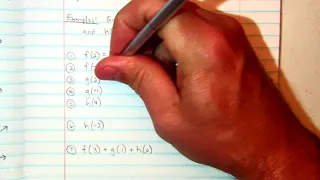 Examples:
and h
① f(2) =
② f(
③ g(2
④ g(-1)
⑤ h(4)
⑥ h(-2)
⑦ f(3) + g(1) + h(0)